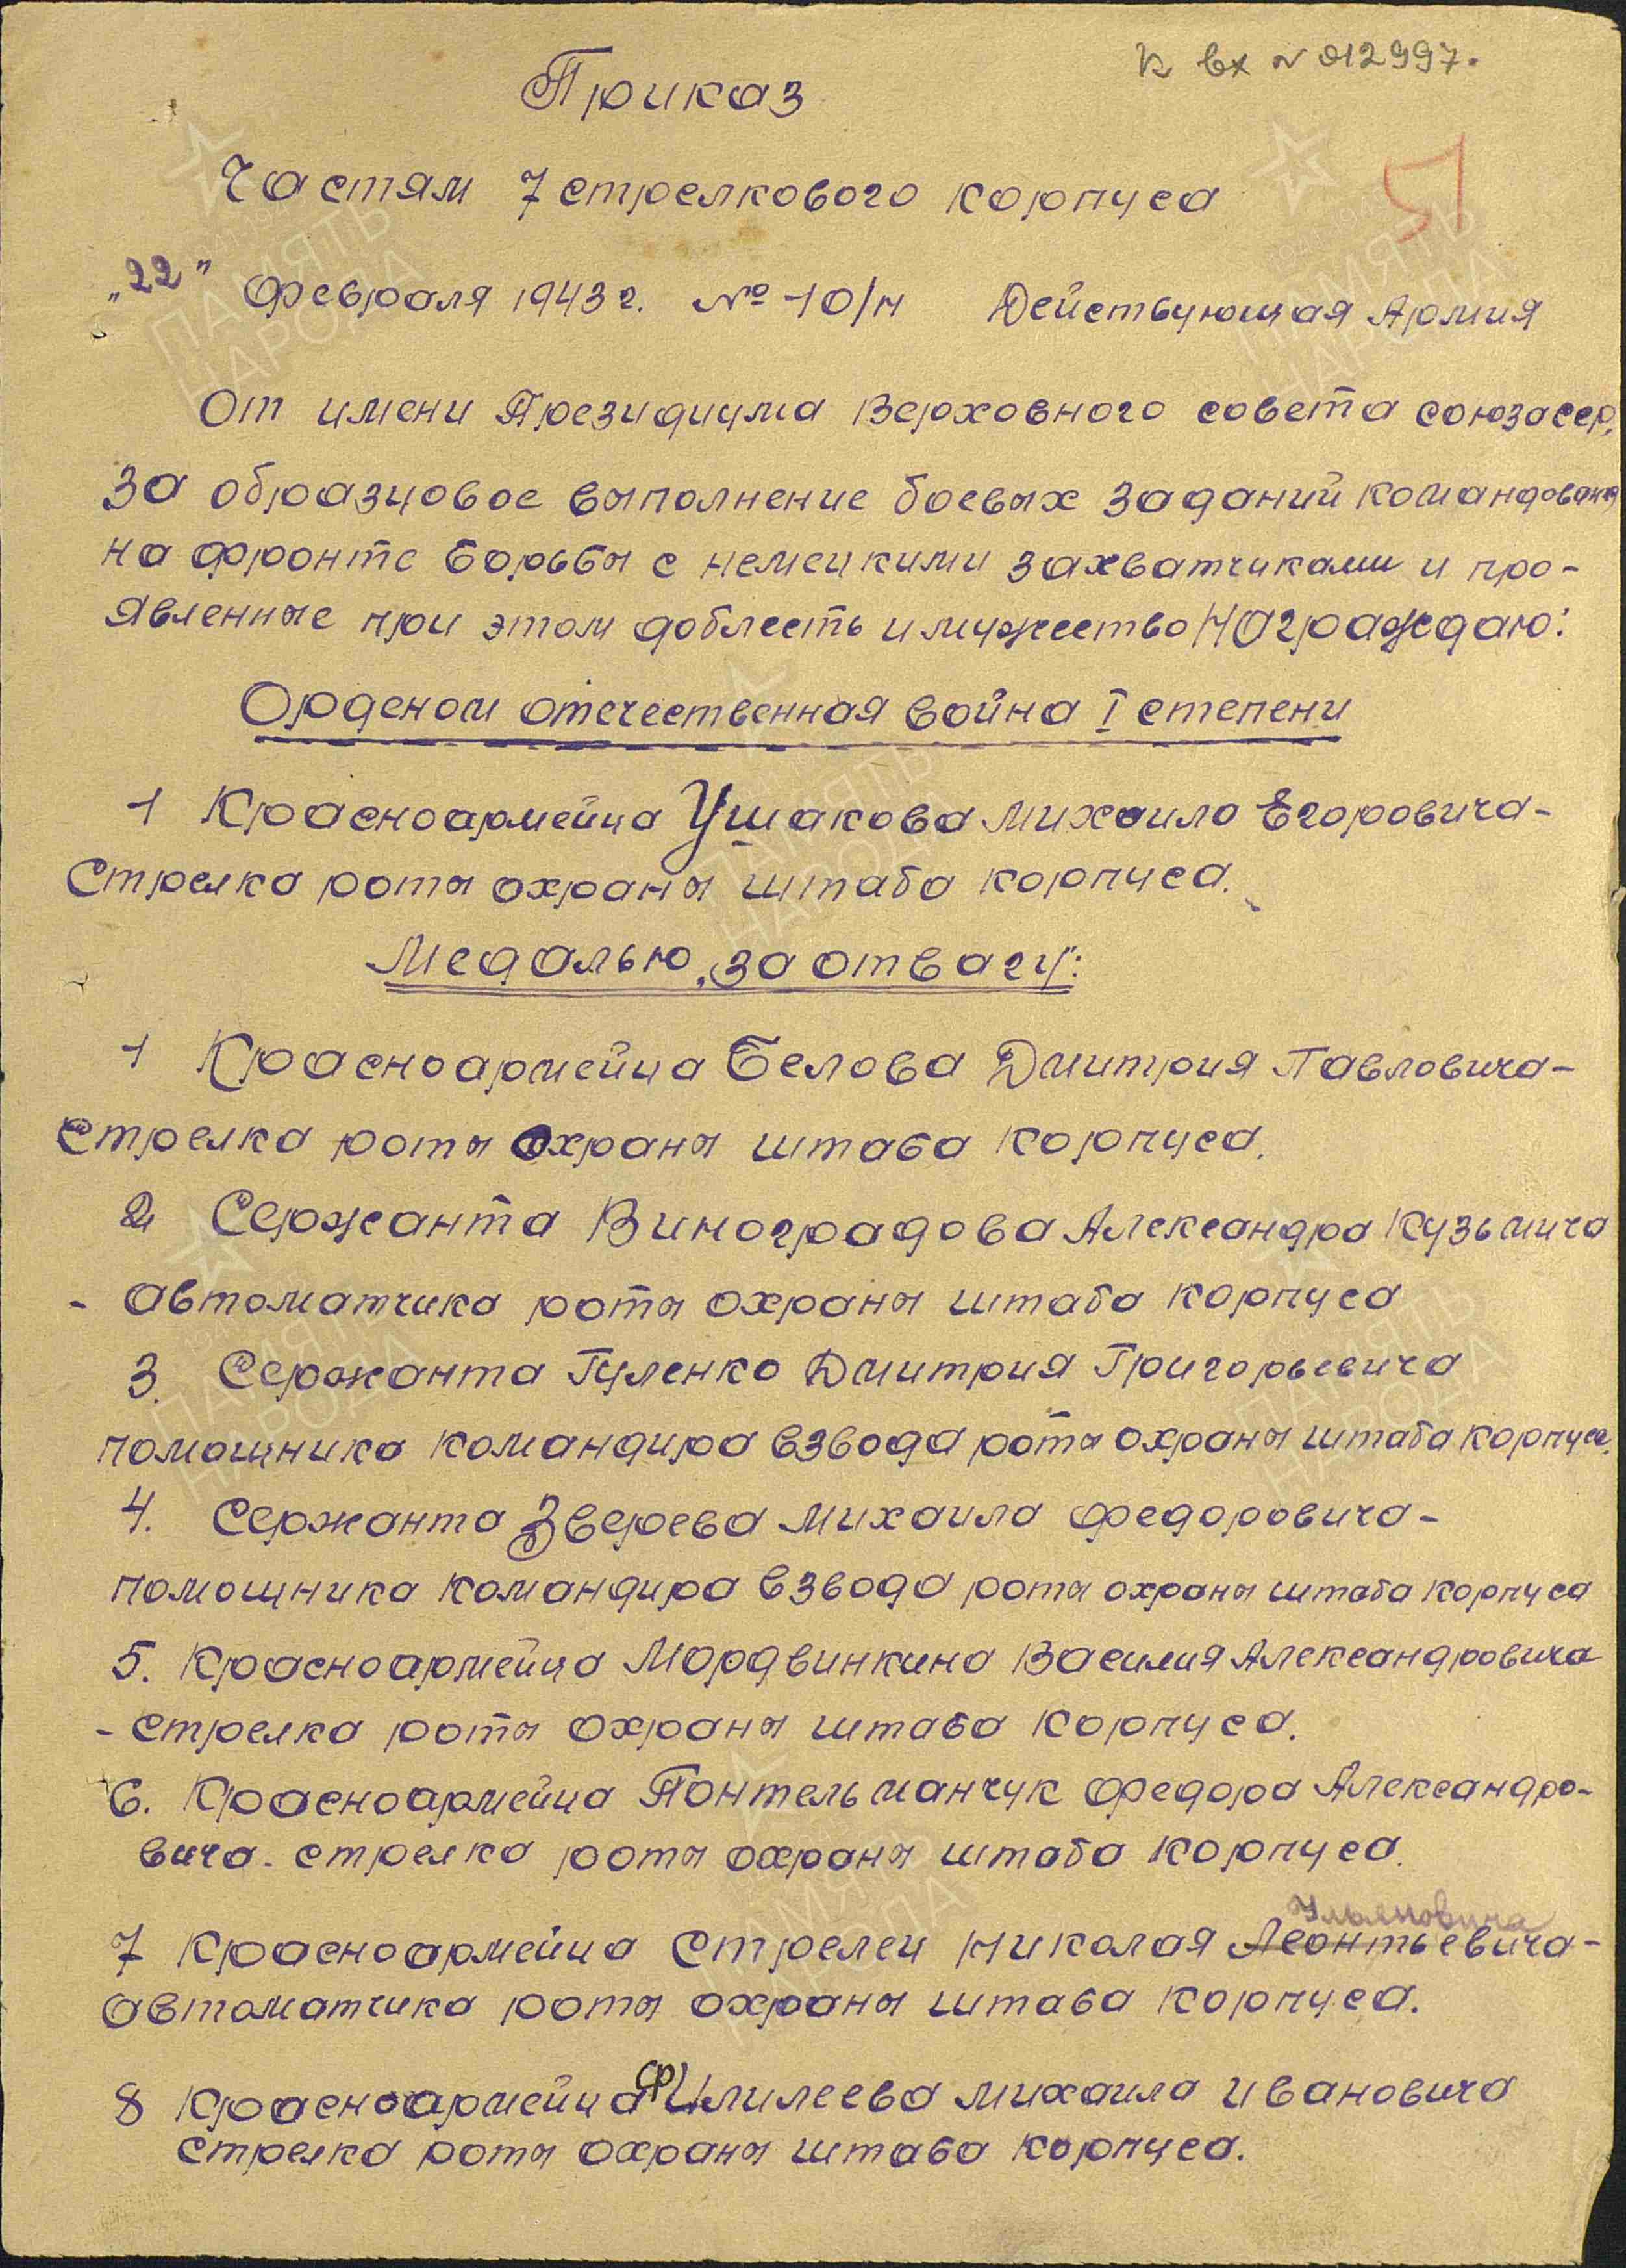 к вх № 012997.
Приказ
51
Частям 7 стрелкового корпуса
"22" Февраля 1943 г. № 10/н Действующая Армия
От имени Президиума Верховного совета союза сср,
за образцовое выполнение боевых заданий командования
на фронте борьбы с немецкими захватчиками и про-
явленные при этом доблесть и мужество награждаю:
Орденом отечественная война I степени
1 Красноармейца Ушакова Михаила Егоровича-
Стрелка роты охраны штаба корпуса.
Медалью "за отвагу":
1 Красноармейца Белова Дмитрия Павловича-
стрелка роты охраны штаба корпуса.
2 Сержанта Виноградова Александра Кузьмича
- автоматчика роты охраны штаба корпуса
3. Сержанта Гуленко Дмитрия Григорьевича
помощника командира взвода роты охраны штаба корпуса.
4. Сержанта Зверева Михаила Федоровича-
помощника командира взвода роты охраны штаба корпуса
5. Красноармейца Мордвинкина Василия Александровича
- стрелка роты охраны штаба корпуса.
6. Красноармейца Пантельманчук Федора Александро-
вича - стрелка роты охраны штаба корпуса.
Ульяновича
7 Красноармейца Стрелец Николая Леонтьевича-
автоматчика роты охраны штаба корпуса.
8 Красноармейца Филилеева Михаила Ивановича
стрелка роты охраны штаба корпуса.
ПАМЯТЬ
НАРОДА